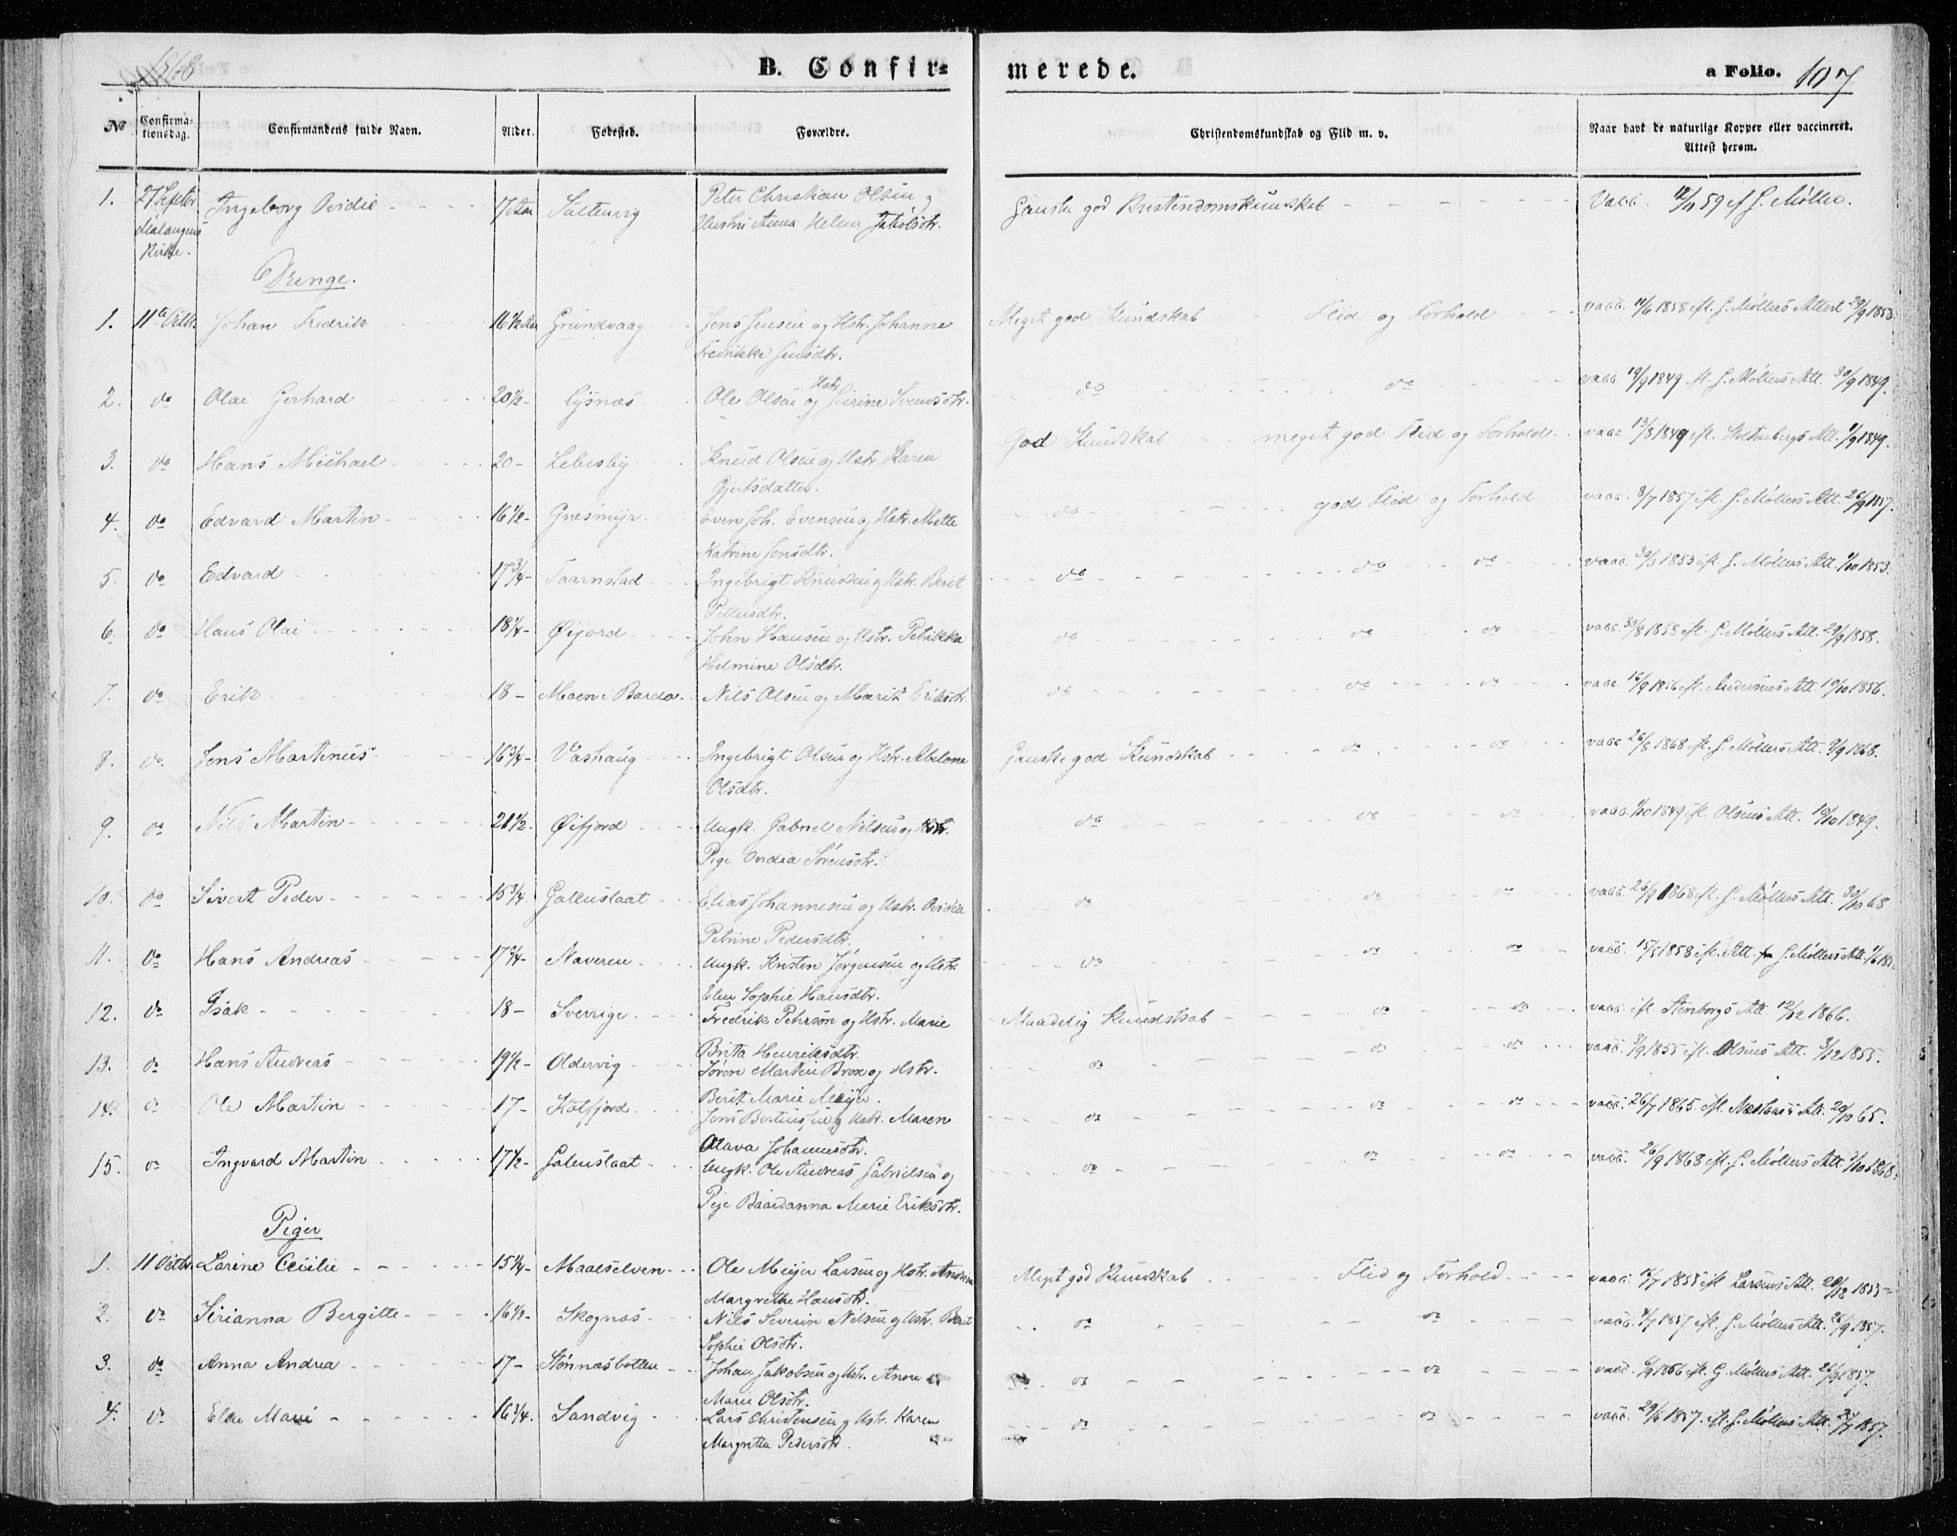 1868
B. Confir=
merede.
a Folio. 107
No
Confirma-
tionsdag.
Confirmandens fulde Navn.
Alder.
Fødested.
Forældre.
Christendomskundskab og Flid m. v.
Naar havt de naturlige Kopper eller vaccineret.
Attest herom.
1. 27 Septbr Ingeborg Ovidie - - - 17 Aar Saltenvig Peter Christian Olsen og Ganske god Kristendomskundskab - - - Vacc. 12/11 59 ef G. Møller.
Malangens Hustru Anna Helene Jakobsdtr.
Kirke.
Drenge.
1. 11te Octbr. Johan Fredrik 16 1/2 Aar Grundvaag Jens Jensen og Hstr. Johanne Meget god Kundskab Flid og Forhold vacc. 11/6 1858 efl. G. Møllers Attest 29/9 1853
Fredrikke Jensdtr.
2. do Olai Gerhard 20 1/2 - Lysnæs Ole Olsen og Hstr. Sirine Svensdtr. do do vacc. 19/9 1849 efl. G. Møllers Att. 30/9 1849.
3. do Hans Michael 20 - Lebesby Knud Olsen og Hstr. Karen God Kundskab meget god Flid og Forhold vacc. 13/8 1849 efl. Stoltenbergs Att. 1/9 1849.
Gjertsdatter.
4. do Edvard Martin 16 1/2 - Gresmyr Even Joh. Evensen og Hstr. Mette do god Flid og Forhold vacc. 8/7 1857 efl. G. Møllers Att. 26/9 1857.
Katrine Jensdtr.
5. do Edvard 17 3/4 - Taarnstad Ingebrigt Knudsen og Hstr. Berit do do do vacc. 30/9 1853 efl. G. Møllers Att. 1/10 1853.
Pettersdtr.
6. do Hans Olai 18 1/4 - Øijord John Hansen og Hstr. Petrikka do do do vacc. 30/8 1858 efl. G. Møllers Att. 29/9 1858.
Helmine Olsdtr.
7. do Erik 18 - Moen i Bardo. Nils Olsen og Marit Eriksdtr. do do do vacc. 16/9 1856 efl. Andersens Att. 19/10 1856.
8. do. Jens Martinus 16 3/4 - Vashaug Ingebrigt Olsen og Hstr. Abelone Ganske god Kundskab do do vacc. 26/8 1868 efl. G. Møllers Att. 9/9 1868.
Olsdtr.
9. do Nils Martin 21 1/2. Øifjord Ungk. Gabriel Nilsen og do do do vacc. 1/10 1849 efl. Olsens Att. 10/10 1849.
Pige Ovidia Sørensdtr.
10. do Sivert Peder 15 3/4. Galenslaat Elias Johannesen og Hstr. Ovidia do do do vacc. 26/9 1868 efl. G. Møllers Att. 30/10 68
Petrine Pedersdtr.
11. do Hans Andreas 17 3/4 - Naveren Ungk. Kristen Jørgensen og Hstr. do do do vacc. 15/5 1858 efl. Att. fr G. Møllers Att.
Elen Sophie Hansdtr.
12. do Isak 18 - Sverrige Fredrik Pehrson og Hstr. Marie Maadelig Kundskab do do vacc. efl. Stenborgs Att. 12/12 1866.
Brita Henriksdtr.
13. do Hans Andreas 19 1/2 - Oldervig Søren Martin Brox og Hstr. do do do vacc. 9/9 1855 efl. Olsens Att. 3/12 1855.
Berit Marie Meyer.
14. do Ole Martin 17 - Kalfjord Jens Bertheusen og Hstr. Maren do do do vacc. 26/7 1865 efl. Att. 20/10 65.
Olava Johannesdtr.
15. do Ingvard Martin 17 1/2 - Galenslaat Ungk. Ole Andreas Gabrielsen og do do do vacc. 26/9 1868 efl. G. Møllers Att. 7/10 1868.
Pige Baardanna Marie Eriksdtr.
Piger
1. 11 Octbr. Larine Cecilie 15 1/4 - Maalselven Ole Meyer Larsen og Hstr. Andrea Meget god Kundskab Flid og Forhold vacc. 12/7 1855 efl Larsens Att. 20/12 1855
Margrethe Hansdtr.
2. do Sirianna Bergitte 16 1/2 - Skognæs Nils Severin Nilsen og Hstr. Berit do do vacc. 4/7 1857 efl. G. Møllers Att. 26/9 1857.
Sophie Olsdtr.
3. do Anna Andrea 17 - Stønnæsbotten Johan Jakobsen og Hstr. Anne do do vacc. 6/9 1856 efl. G Møllers Att. 26/9 1857.
Marie Olsdtr.
4. do Elen Marie 16 3/4. Sandvig Lars Christensen og Hstr. Karen do do vacc. 29/6 1857. efl. G. Møllers Att. 24/7 1857.
Margretha Pedersdtr.